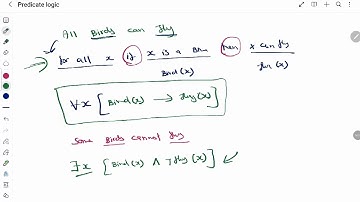 Predicate logic
All Birds can fly
for all x if x is a Bird then x can fly
Bird(x) fly(x)
∀x [Bird(x) → fly(x)]
Some Birds cannot fly
∃x [Bird(x) ∧ ¬fly(x)]